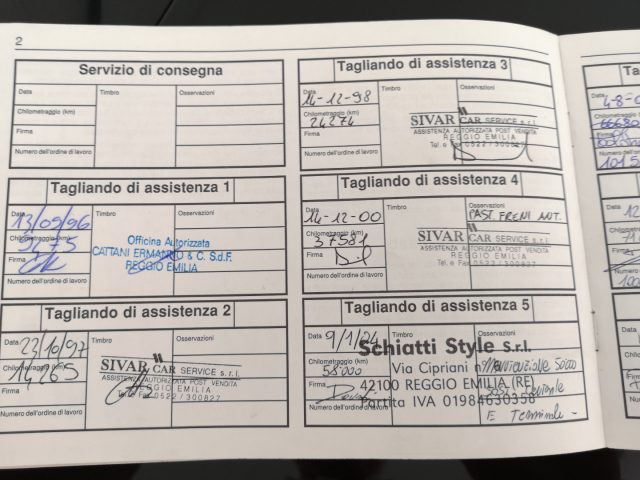 2
Servizio di consegna
Data
Timbro
Osservazioni
Chilometraggio (km)
Firma
Numero dell'ordine di lavoro
Tagliando di assistenza 1
Data 13/09/96
Timbro
Osservazioni
Chilometraggio (km)
Firma
Officina Autorizzata
CATTANI ERMANNO & C. S.d.F.
REGGIO EMILIA
Numero dell'ordine di lavoro
Tagliando di assistenza 2
Data 23/10/97
Timbro
Osservazioni
Chilometraggio (km)
14265
Firma
SIVAR CAR SERVICE s.r.l.
ASSISTENZA AUTORIZZATA POST VENDITA
REGGIO EMILIA
Tel. e Fax 0522/300827
Numero dell'ordine di lavoro
Tagliando di assistenza 3
Data 14-12-98
Timbro
Osservazioni
Chilometraggio (km)
24274
Firma
SIVAR CAR SERVICE s.r.l.
ASSISTENZA AUTORIZZATA POST VENDITA
REGGIO EMILIA
Tel. e Fax 0522/300827
Numero dell'ordine di lavoro
Tagliando di assistenza 4
Data 14-12-00
Timbro
Osservazioni
PAST. FRENI ANT.
Chilometraggio (km)
37581
Firma
SIVAR CAR SERVICE s.r.l.
ASSISTENZA AUTORIZZATA POST VENDITA
REGGIO EMILIA
Tel. e Fax 0522/300827
Numero dell'ordine di lavoro
Tagliando di assistenza 5
Data 9/1/24
Timbro
Osservazioni
Chilometraggio (km)
58000
Firma
Numero dell'ordine di lavoro
Schiatti Style s.r.l.
Via Cipriani n°
42100 REGGIO EMILIA (RE)
Partita IVA 01984630358
E Terminale -
Data 4-8-0